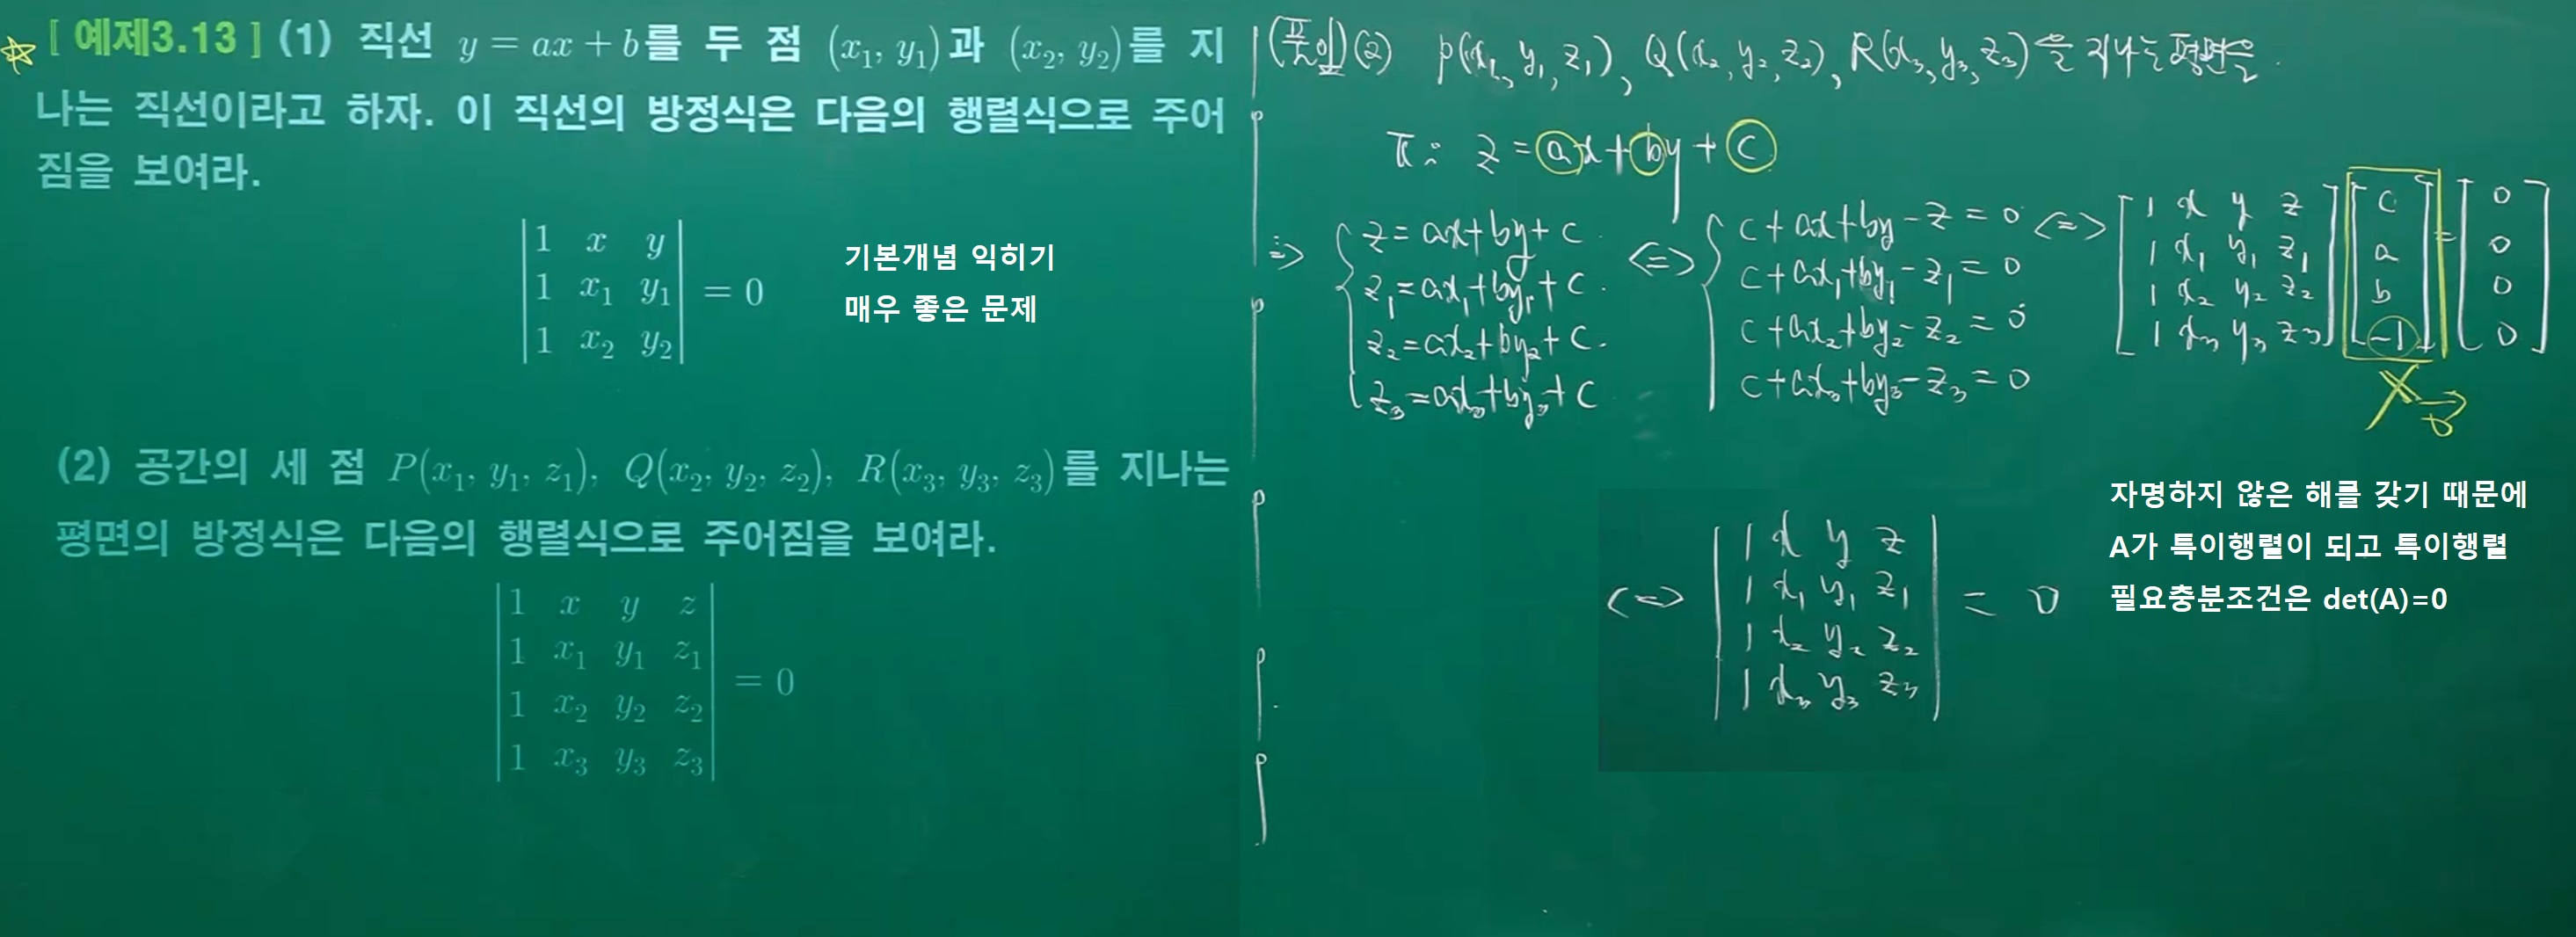 ☆ [ 예제3.13 ] (1) 직선 y = ax + b를 두 점 (x₁, y₁)과 (x₂, y₂)를 지
나는 직선이라고 하자. 이 직선의 방정식은 다음의 행렬식으로 주어
짐을 보여라.
|1 x y|
|1 x₁ y₁| = 0
|1 x₂ y₂|
기본개념 익히기
매우 좋은 문제
(2) 공간의 세 점 P(x₁, y₁, z₁), Q(x₂, y₂, z₂), R(x₃, y₃, z₃)를 지나는
평면의 방정식은 다음의 행렬식으로 주어짐을 보여라.
|1 x y z|
|1 x₁ y₁ z₁|
|1 x₂ y₂ z₂| = 0
|1 x₃ y₃ z₃|
(풀이) (2) P(x₁, y₁, z₁), Q(x₂, y₂, z₂), R(x₃, y₃, z₃)을 지나는 평면을
π: z = ax + by + c
⇒ { z = ax + by + c
z₁ = ax₁ + by₁ + c
z₂ = ax₂ + by₂ + c
z₃ = ax₃ + by₃ + c
⇔ { c + ax + by - z = 0
c + ax₁ + by₁ - z₁ = 0
c + ax₂ + by₂ - z₂ = 0
c + ax₃ + by₃ - z₃ = 0
⇔ [1 x y z] [c] [0]
[1 x₁ y₁ z₁] [a] = [0]
[1 x₂ y₂ z₂] [b] [0]
[1 x₃ y₃ z₃] [-1] [0]
X
⇔ |1 x y z|
|1 x₁ y₁ z₁| = 0
|1 x₂ y₂ z₂|
|1 x₃ y₃ z₃|
자명하지 않은 해를 갖기 때문에
A가 특이행렬이 되고 특이행렬
필요충분조건은 det(A)=0